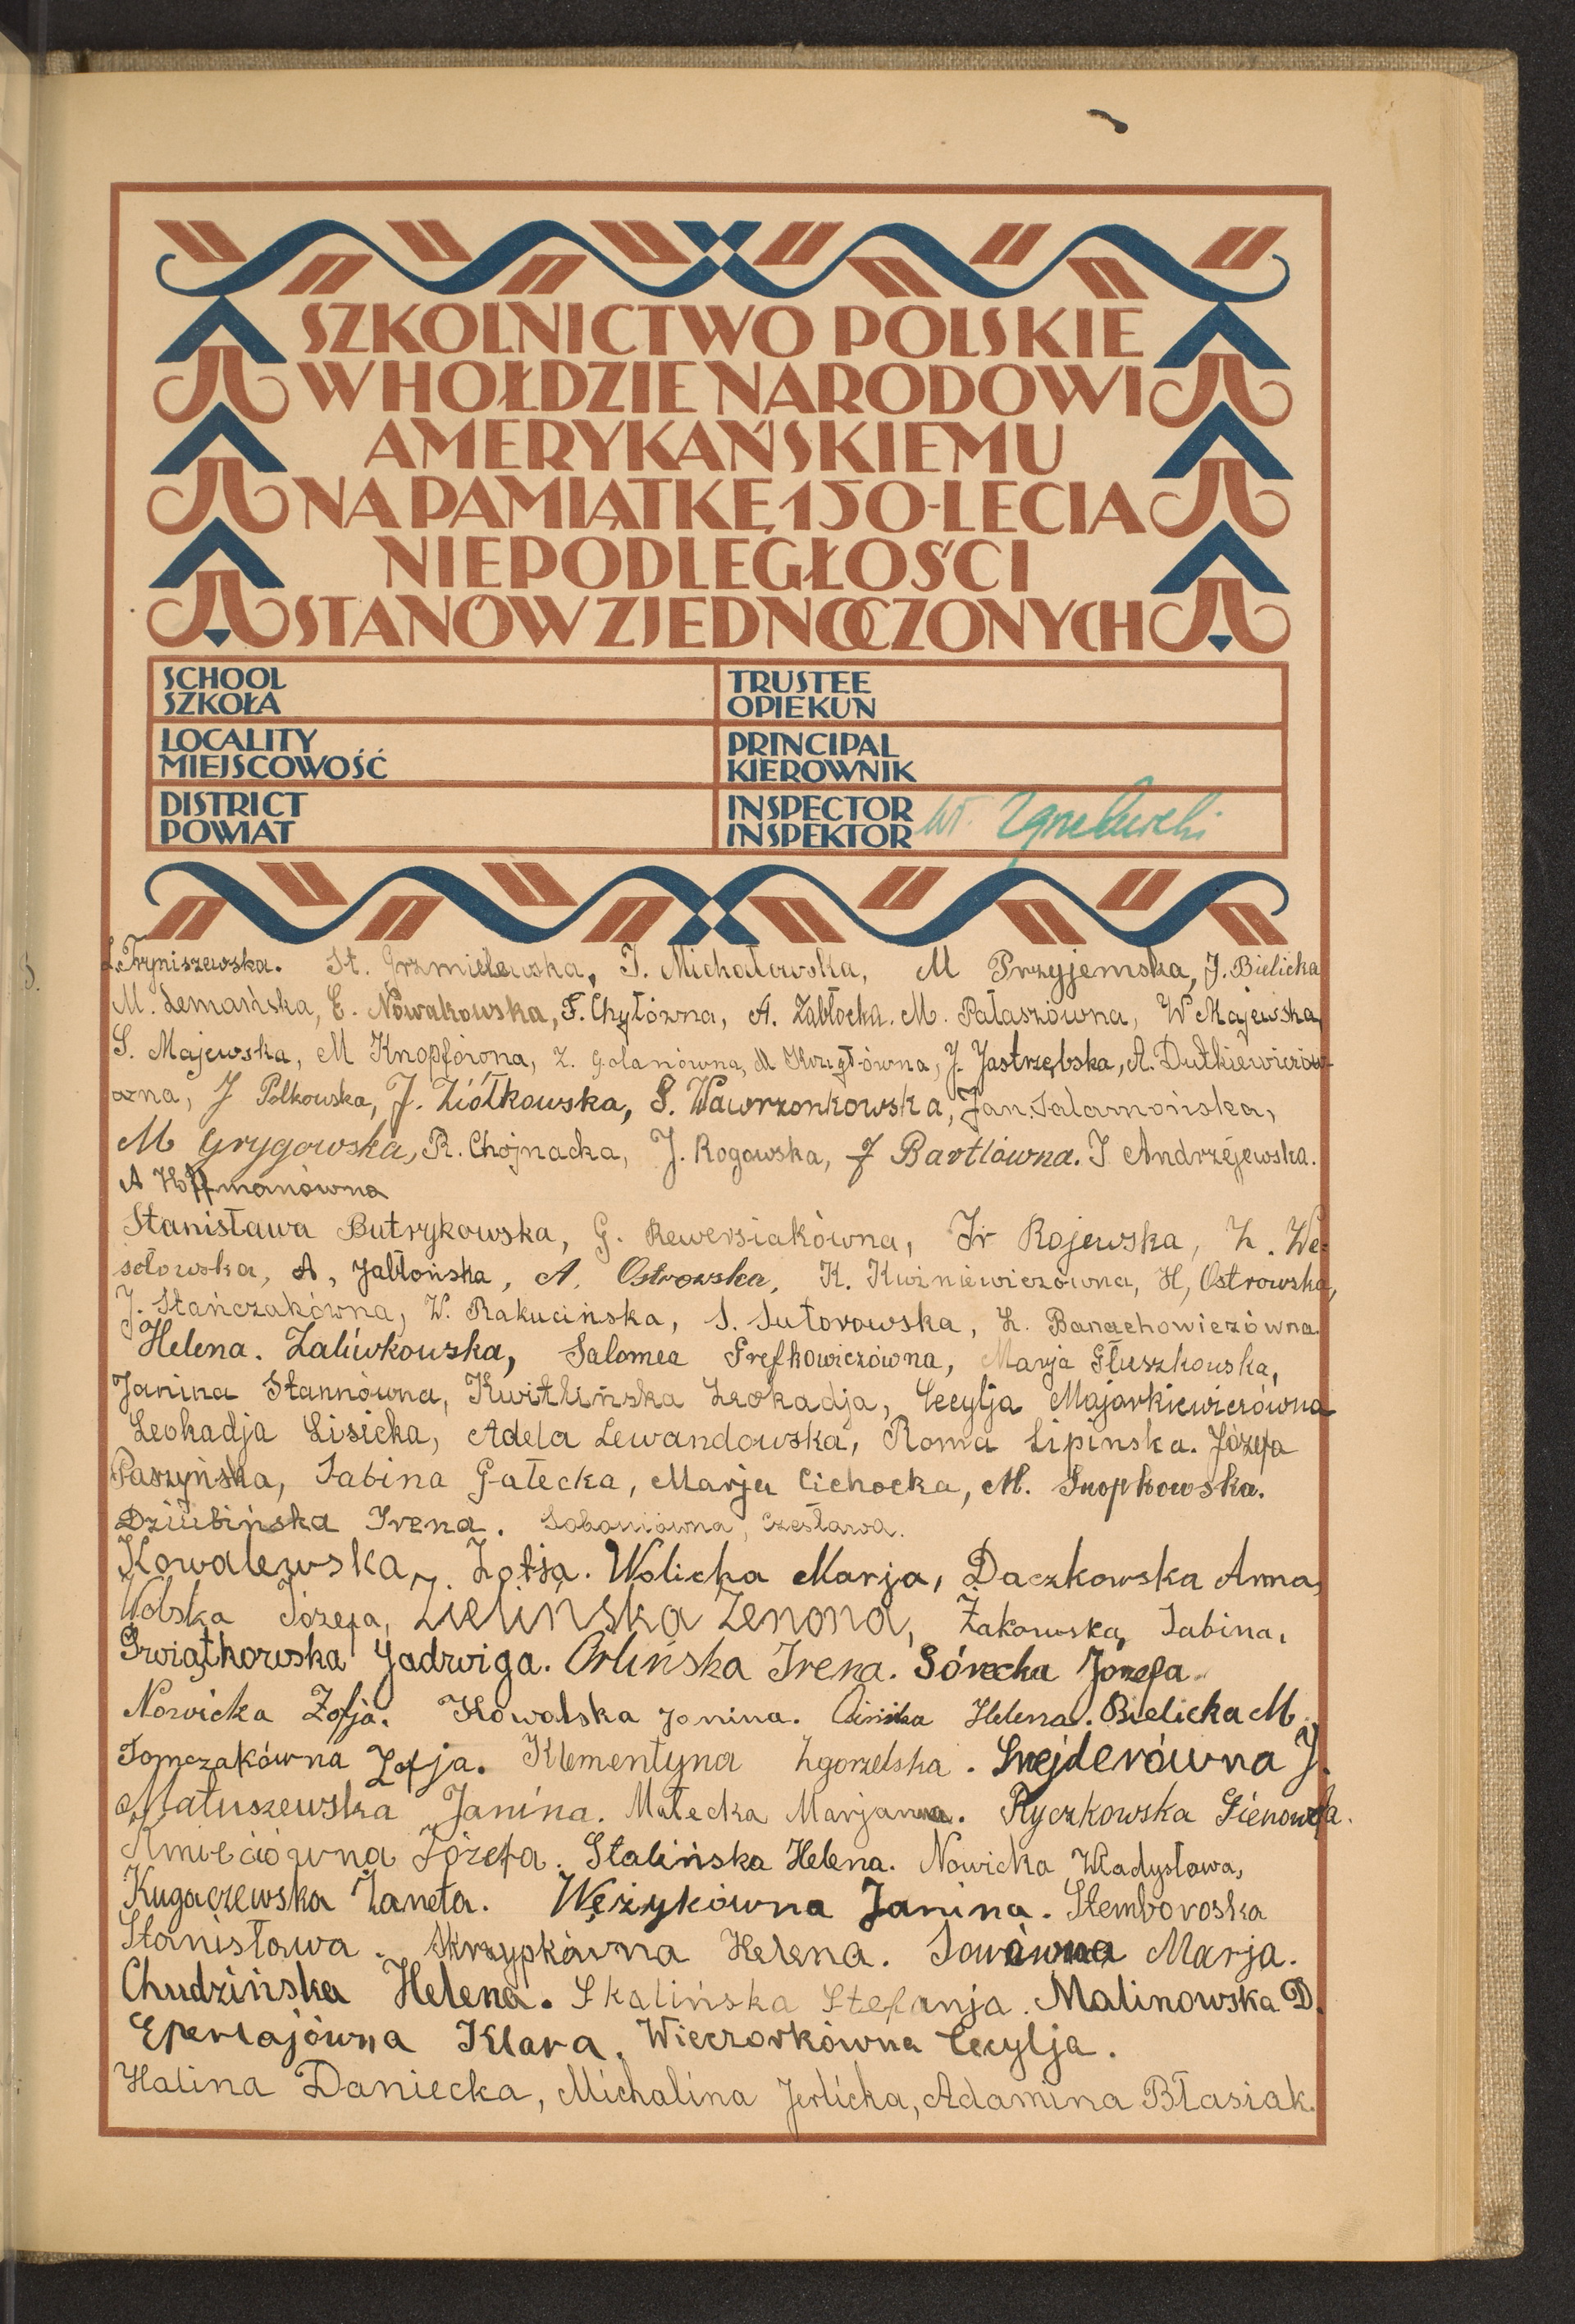 SZKOLNICTWO POLSKIE
W HOŁDZIE NARODOWI
AMERYKAŃSKIEMU
NA PAMIĄTKĘ 150-LECIA
NIEPODLEGŁOŚCI
STANÓW ZJEDNOCZONYCH
SCHOOL
SZKOŁA
TRUSTEE
OPIEKUN
LOCALITY
MIEJSCOWOŚĆ
PRINCIPAL
KIEROWNIK
DISTRICT
POWIAT
INSPECTOR
INSPEKTOR
Ł. Tryniszewska. St. Grzmielewska, I. Michałowska, M Przyjemska, J. Bielicka
M. Lemańska, E. Nowakowska, F. Chyłówna, A. Zabłocka. M. Pałaszówna, W Majewska,
S. Majewska, M Knopfówna, Z. Golanówna, M Kręgłówna, J. Jastrzębska, A. Dutkiewiczów-
na, J Polkowska, J. Ziółkowska, S. Wawrzonkowska, Jan. Salamońska,
M Grygowska, R. Chojnacka, J. Rogowska, J Bartlówna. I Andrzejewska.
A Hoffmanówna
Stanisława Butrykowska, G. Rewersiakówna, Ir Rojewska, Z. We-
sołowska, A, Jabłońska, A. Ostrowska, K. Kuźniewiczówna, H, Ostrowska,
J. Stańczakówna, W. Rakucińska, S. Sutorowska, Z. Banachowiczówna.
Helena. Zaliwkowska, Salomea Prefkowiczówna, Marja Głuszkowska,
Janina Stannówna, Kwitlińska Leokadja, Cecylja Majorkiewiczówna
Leokadja Lisicka, Adela Lewandowska, Roma Lipinska. Józefa
Paszyńska, Sabina Gałecka, Marja Cichocka, M. Snopkowska.
Dziubińska Irena. Soboniówna, Czesława.
Kowalewska Zofja. Wolicka Marja, Daczkowska Anna,
Wolska Józefa, Zielińska Zenona, Żakowska, Sabina,
Świątkowska Jadwiga. Orlińska Irena. Górecka Józefa.
Nowicka Zofja. Kowalska Janina. Helena. Bielicka M.
Tomczakówna Zofja. Klementyna Zgorzelska. Snejderówna J.
Matuszewska Janina. Małecka Marjanna. Ryczkowska Gienowefa.
Kmieciówna Józefa. Stalińska Helena. Nowicka Władysława,
Kugaczewska Żaneta. Wężykówna Janina. Stemborowska
Stanisława. Skrzypkówna Helena. Sowówna Marja.
Chudzińska Helena. Skalińska Stefanja. Malinowska D.
Eperlajówna Klara. Wieczorkówna Cecylja.
Halina Daniecka, Michalina Jerlicka, Adamina Błasiak.